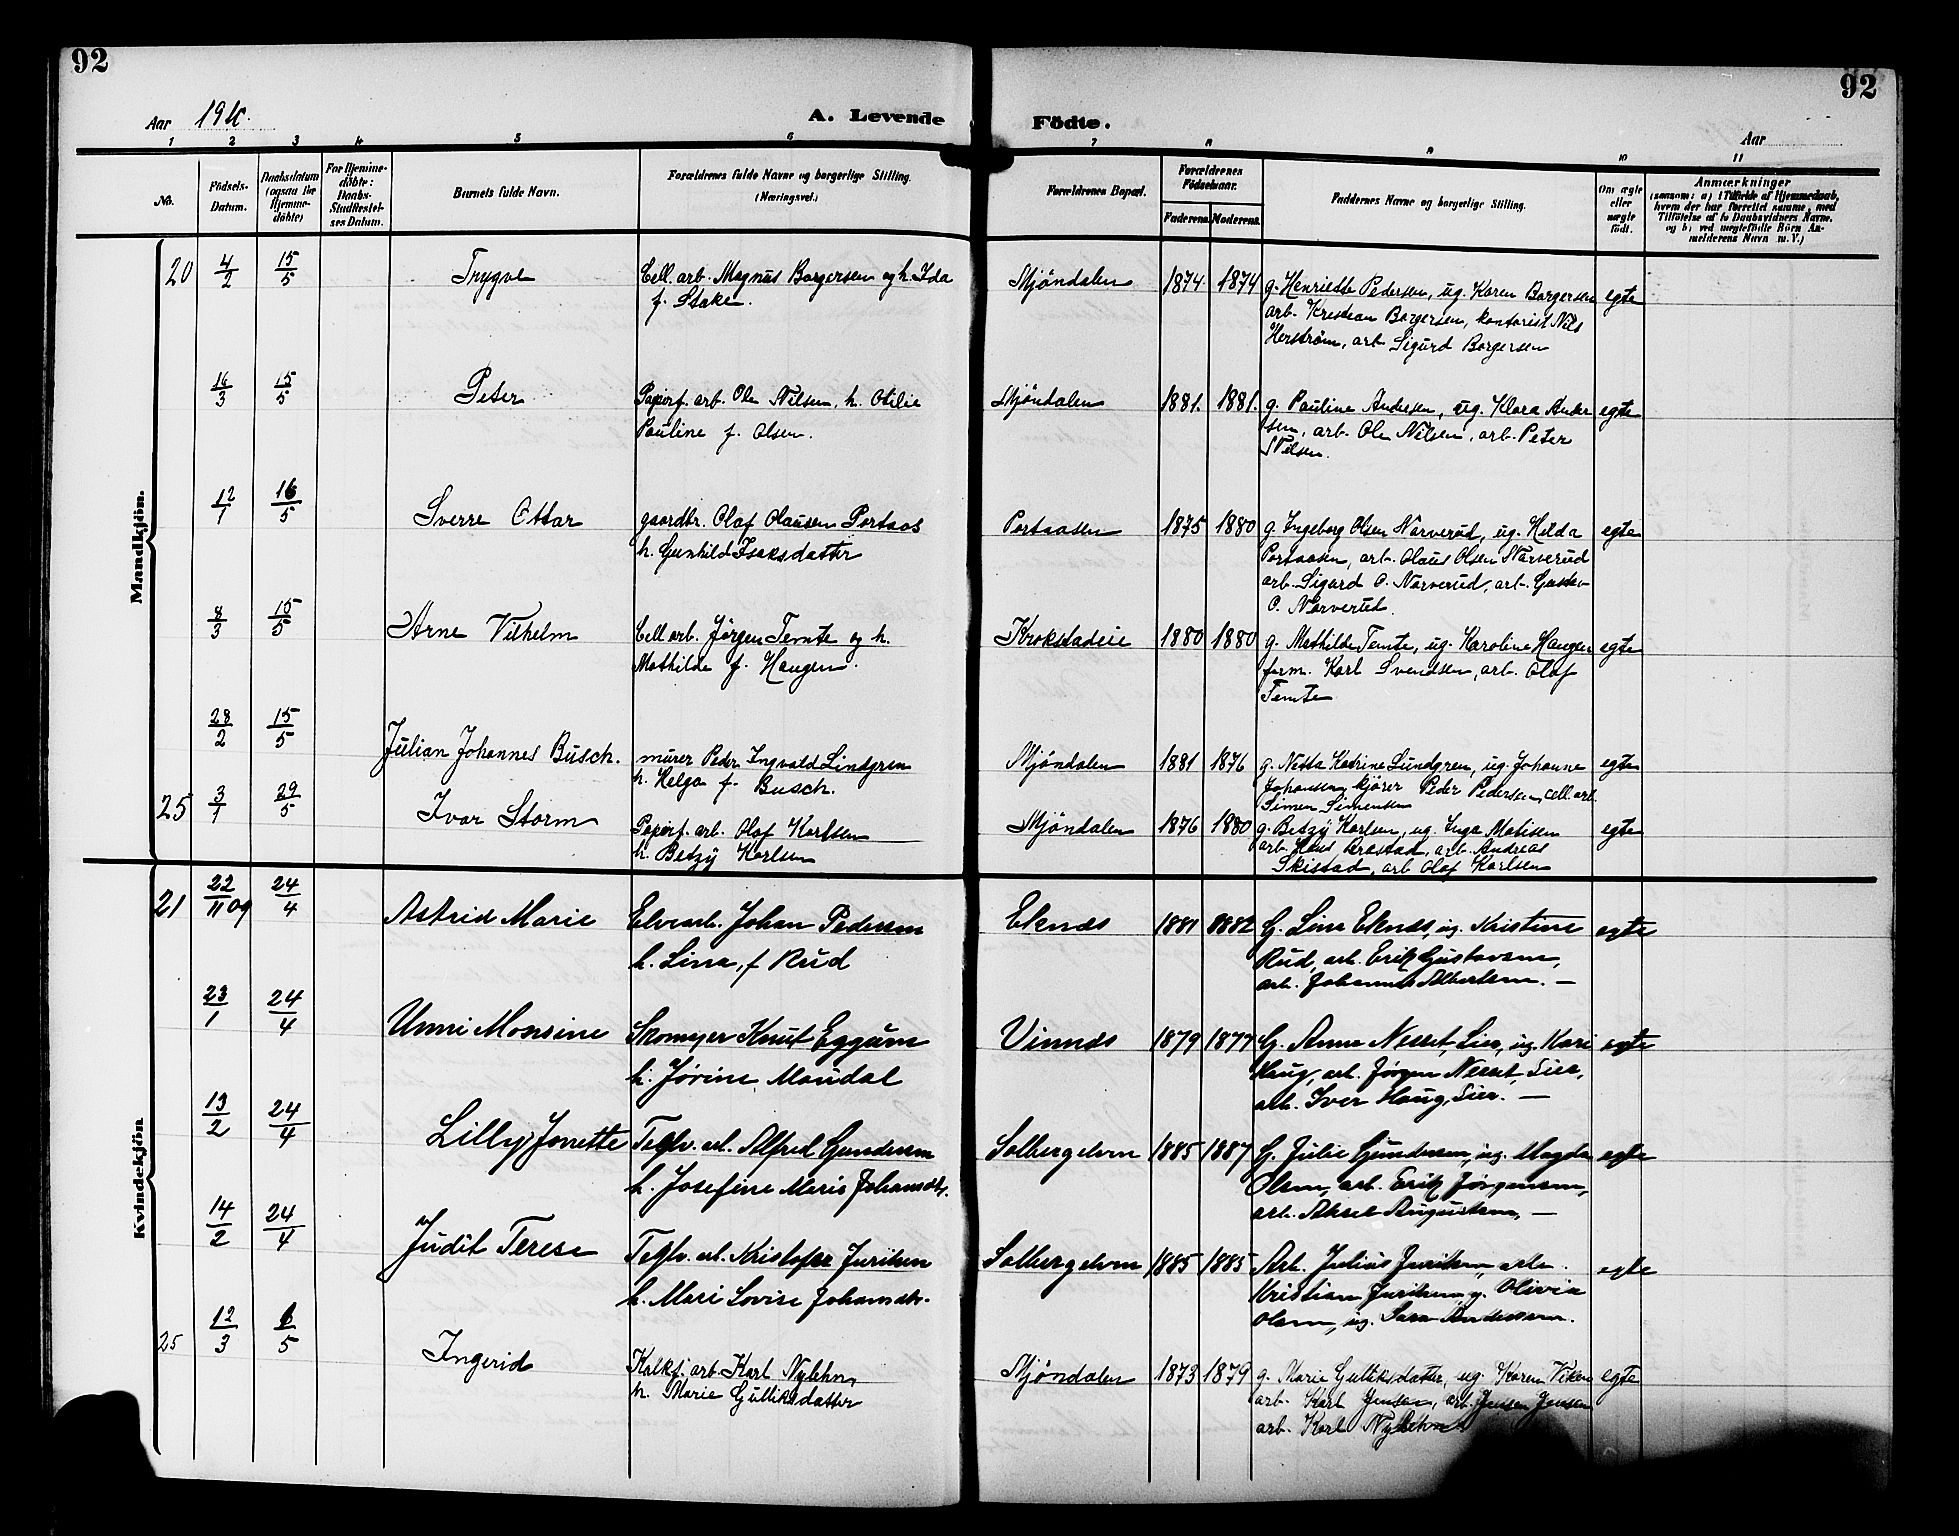 92
92
Aar 1910.
A. Levende Födte.
Aar
1 2 3 4 5 6 7 8 9 10 11
No.
Födsels-Datum.
Daabsdatum (ogsaa for Hjemmedöbte)
For Hjemmedöbte: Daabs-Stadfæstelses Datum.
Barnets fulde Navn.
Forældrenes fulde Navne og borgerlige Stilling. (Næringsvei.)
Forældrenes Bopæl.
Forældrenes Födselsaar.
Faderens. Moderens.
Faddernes Navne og borgerlige Stilling.
Om ægte eller uægte födt.
Anmærkninger
(saasom: a) Tilfælde af Hjemmedaab,
hvem der har forrettet samme, med
Tilföielse af to Daabsvidners Navne.
og b) ved uægtefödte Börn An-
melderens Navn m. V.)
Mandkjön.
20 4/2 15/5 Trygve
Cell. arb. Magnus Borgersen og h. Ida
f. Stake.
Mjöndalen 1874 1874
g. Henriette Pedersen, ug. Karen Borgersen
arb. Kristian Borgersen, kontorist Nils
Herström, arb Sigurd Borgersen
egte
16/3 15/5 Peter
Papirf. arb. Ole Nilsen, h. Otilie
Pauline f. Olsen.
Mjöndalen 1881. 1881.
g. Pauline Andersen, ug. Klara Ander
sen, arb. Ole Nilsen, arb. Peter
Nilsen.
egte
12/1 16/5 Sverre Ottar
gaardbr. Olaf Olausen Portaas
h. Gunhild Isaksdatter
Portaasen 1875 1880
g. Ingeborg Olsen Narverud, ug. Hilda
Portaasen, arb. Olaus Olsen Narverud
arb. Sigurd O. Narverud, arb. Gustav
O. Narverud.
egte
8/3 15/5 Arne Vilhelm
Cell arb. Jörgen Temte og h.
Mathilde f. Haugen.
Krokstadeie 1880 1880
g. Mathilde Temte, ug. Karoline Haugen
form. Karl Svendsen, arb. Olaf
Temte
egte
28/2 15/5 Julian Johannes Busch.
murer Peder Ingvald Lindgren
h. Helga f. Busch.
Mjöndalen 1881 1876
g. Netta Katrine Lundgren, ug. Johanne
Johansen, kjörer Peder Pedersen, cell. arb.
Simen Simensen
egte
25 3/1 29/5 Ivar Storm
Papirf. arb. Olaf Karlsen
h. Betzy Karlsen
Mjöndalen 1876 1880
g. Betzy Karlsen, ug. Inga Matisen
arb. Hans Arestad, arb. Andreas
Skistad, arb Olaf Karlsen
egte
Kvindekjön
21 22/11 09 24/4 Astrid Marie
Elvearb. Johan Pedersen
h. Lina, f Rud
Eknes 1881 1882
G. Lina Eknes, ug. Kristine
Rud, arb. Erik Gustavsen,
arb. Johannes Albertsen. —
egte
23/1 24/4 Unni Monsine
Skomager Knut Eggum
h. Jörine Maudal
Vinnes 1879 1877
G. Anna Nesset, Lier, ug. Kari
Haug, arb. Jörgen Nesset, Lier,
arb. Iver Haug, Lier. —
egte
13/2 24/4 Lilly Jonette
Teglv. arb. Alfred Gundersen
h. Josefine Marie Johansdtr.
Solbergelven 1885 1887
G. Julie Gundersen, ug. Magda
Olsen, arb. Erik Jörgensen,
arb. Aksel Augustsen, —
egte
14/2 24/4 Judit Terese
Teglv. arb. Kristoffer Juriksen
h. Mari Lovise Johansdtr.
Solbergelven 1885 1885
Arb. Julius Juriksen, arb.
Kristian Juriksen, g. Olivia
Olsen, ug. Sara Andersen.
egte
25 12/3 6/5 Ingerid
Kalkf. arb. Karl Nylehn,
h. Marie Gulliksdatter
Mjöndalen 1873 1879
g. Marie Gulliksdatter, ug. Karen Viken
arb. Karl Jensen, arb. Jensen Jensen
arb. Karl Nylehn
egte